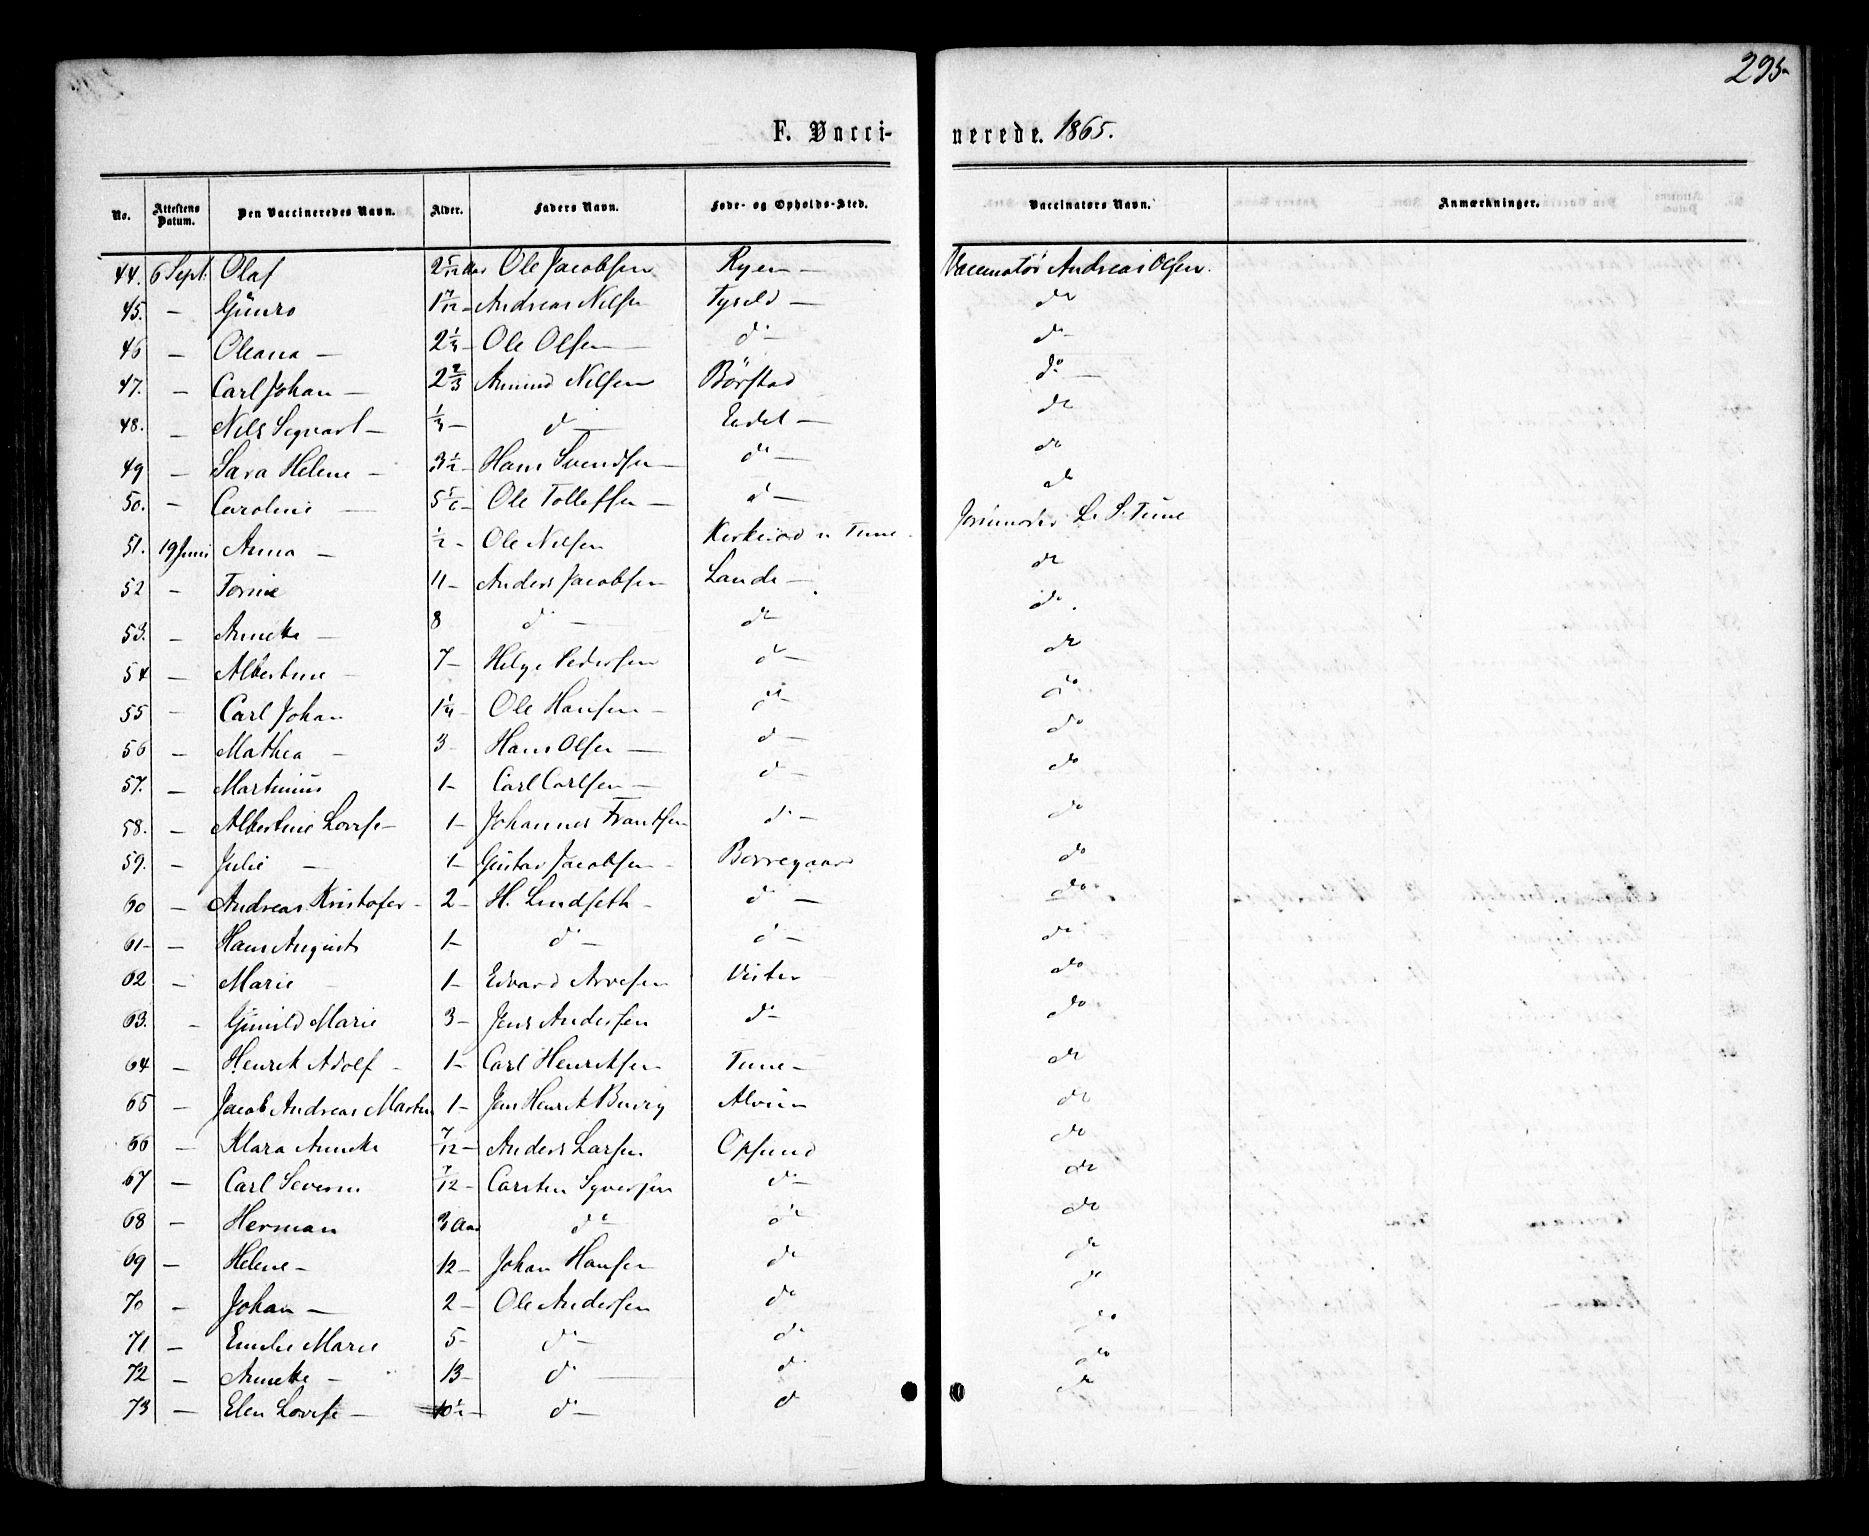 295
F. Vacci- nerede. 1865.
No. Attestens Datum. Den Vaccineredes Navn. Alder. Faders Navn. Føde- og Opholds-Sted. Vaccinators Navn. Anmærkninger.
44. 6 Sept. Olaf 2 5/12 Aar Ole Jacobsen Ryen — Vaccinatör Andreas Olsen.
45. — Günro 1 7/12 — Andreas Nilsen Tyseld — do
46 — Oleana — 2 1/4 — Ole Olsen — do do
47. — Carl Johan — 2 2/3 Amund Nilsen Börstad do —
48. — Nils Sigvart — 1/4 — do — Endet — do
49 — Sara Helene — 3 1/2 — Hans Svendsen — do — do
50. — Caroline — 5 5/6 — Ole Tollefsen — do — do
51. 19 Juni Anna — 1/2 — Ole Nilsen Kirkeröd i Tune. Jordmoder L. S. Tune
52 — Tomine 11 — Anders Jacobsen Lande — do
53. — Annette — 8 do — do do
54 — Albertine — 7 — Helge Pedersen do — do
55 — Carl Johan 1 1/4 — Ole Hansen — do do
56 — Mathea — 3 — Hans Olsen — do — do
57. — Martinius 1 — Carl Carlsen — do — do
58. — Albertine Lovise — 1 — Johannes Frantsen do — do
59. — Julie — 1 — Gustav Jacobsen — Borregaard do
60 — Andreas Kristofer — 2 — H. Lindseth — do — do
61 — — Hans August 1 — do — do — do
62 — Marie — 1 — Edvard Arvesen Vister do
63. — Gunild Marie 3 — Jens Andersen do do
64 — Henrik Adolf — 1 — Carl Henriksen Tune — do
65 — Jacob Andreas Martin 1 — Jens Henrik Alvim do
66 — Klara Annette 7/12 — Anders Larsen Opsund do
67 — Carl Severin 7/12 — Carsten Syversen do — do
68 — Herman 3 Aar do do do
69 — Helene — 12 — Johan Hansen do do
70 — Johan — 2 — Ole Andersen do do
71 — Emilie Marie 5 — do — do do
72 — Annette — 13 — do — do do
73 — Elen Lovise — 10 1/2 — do — do do